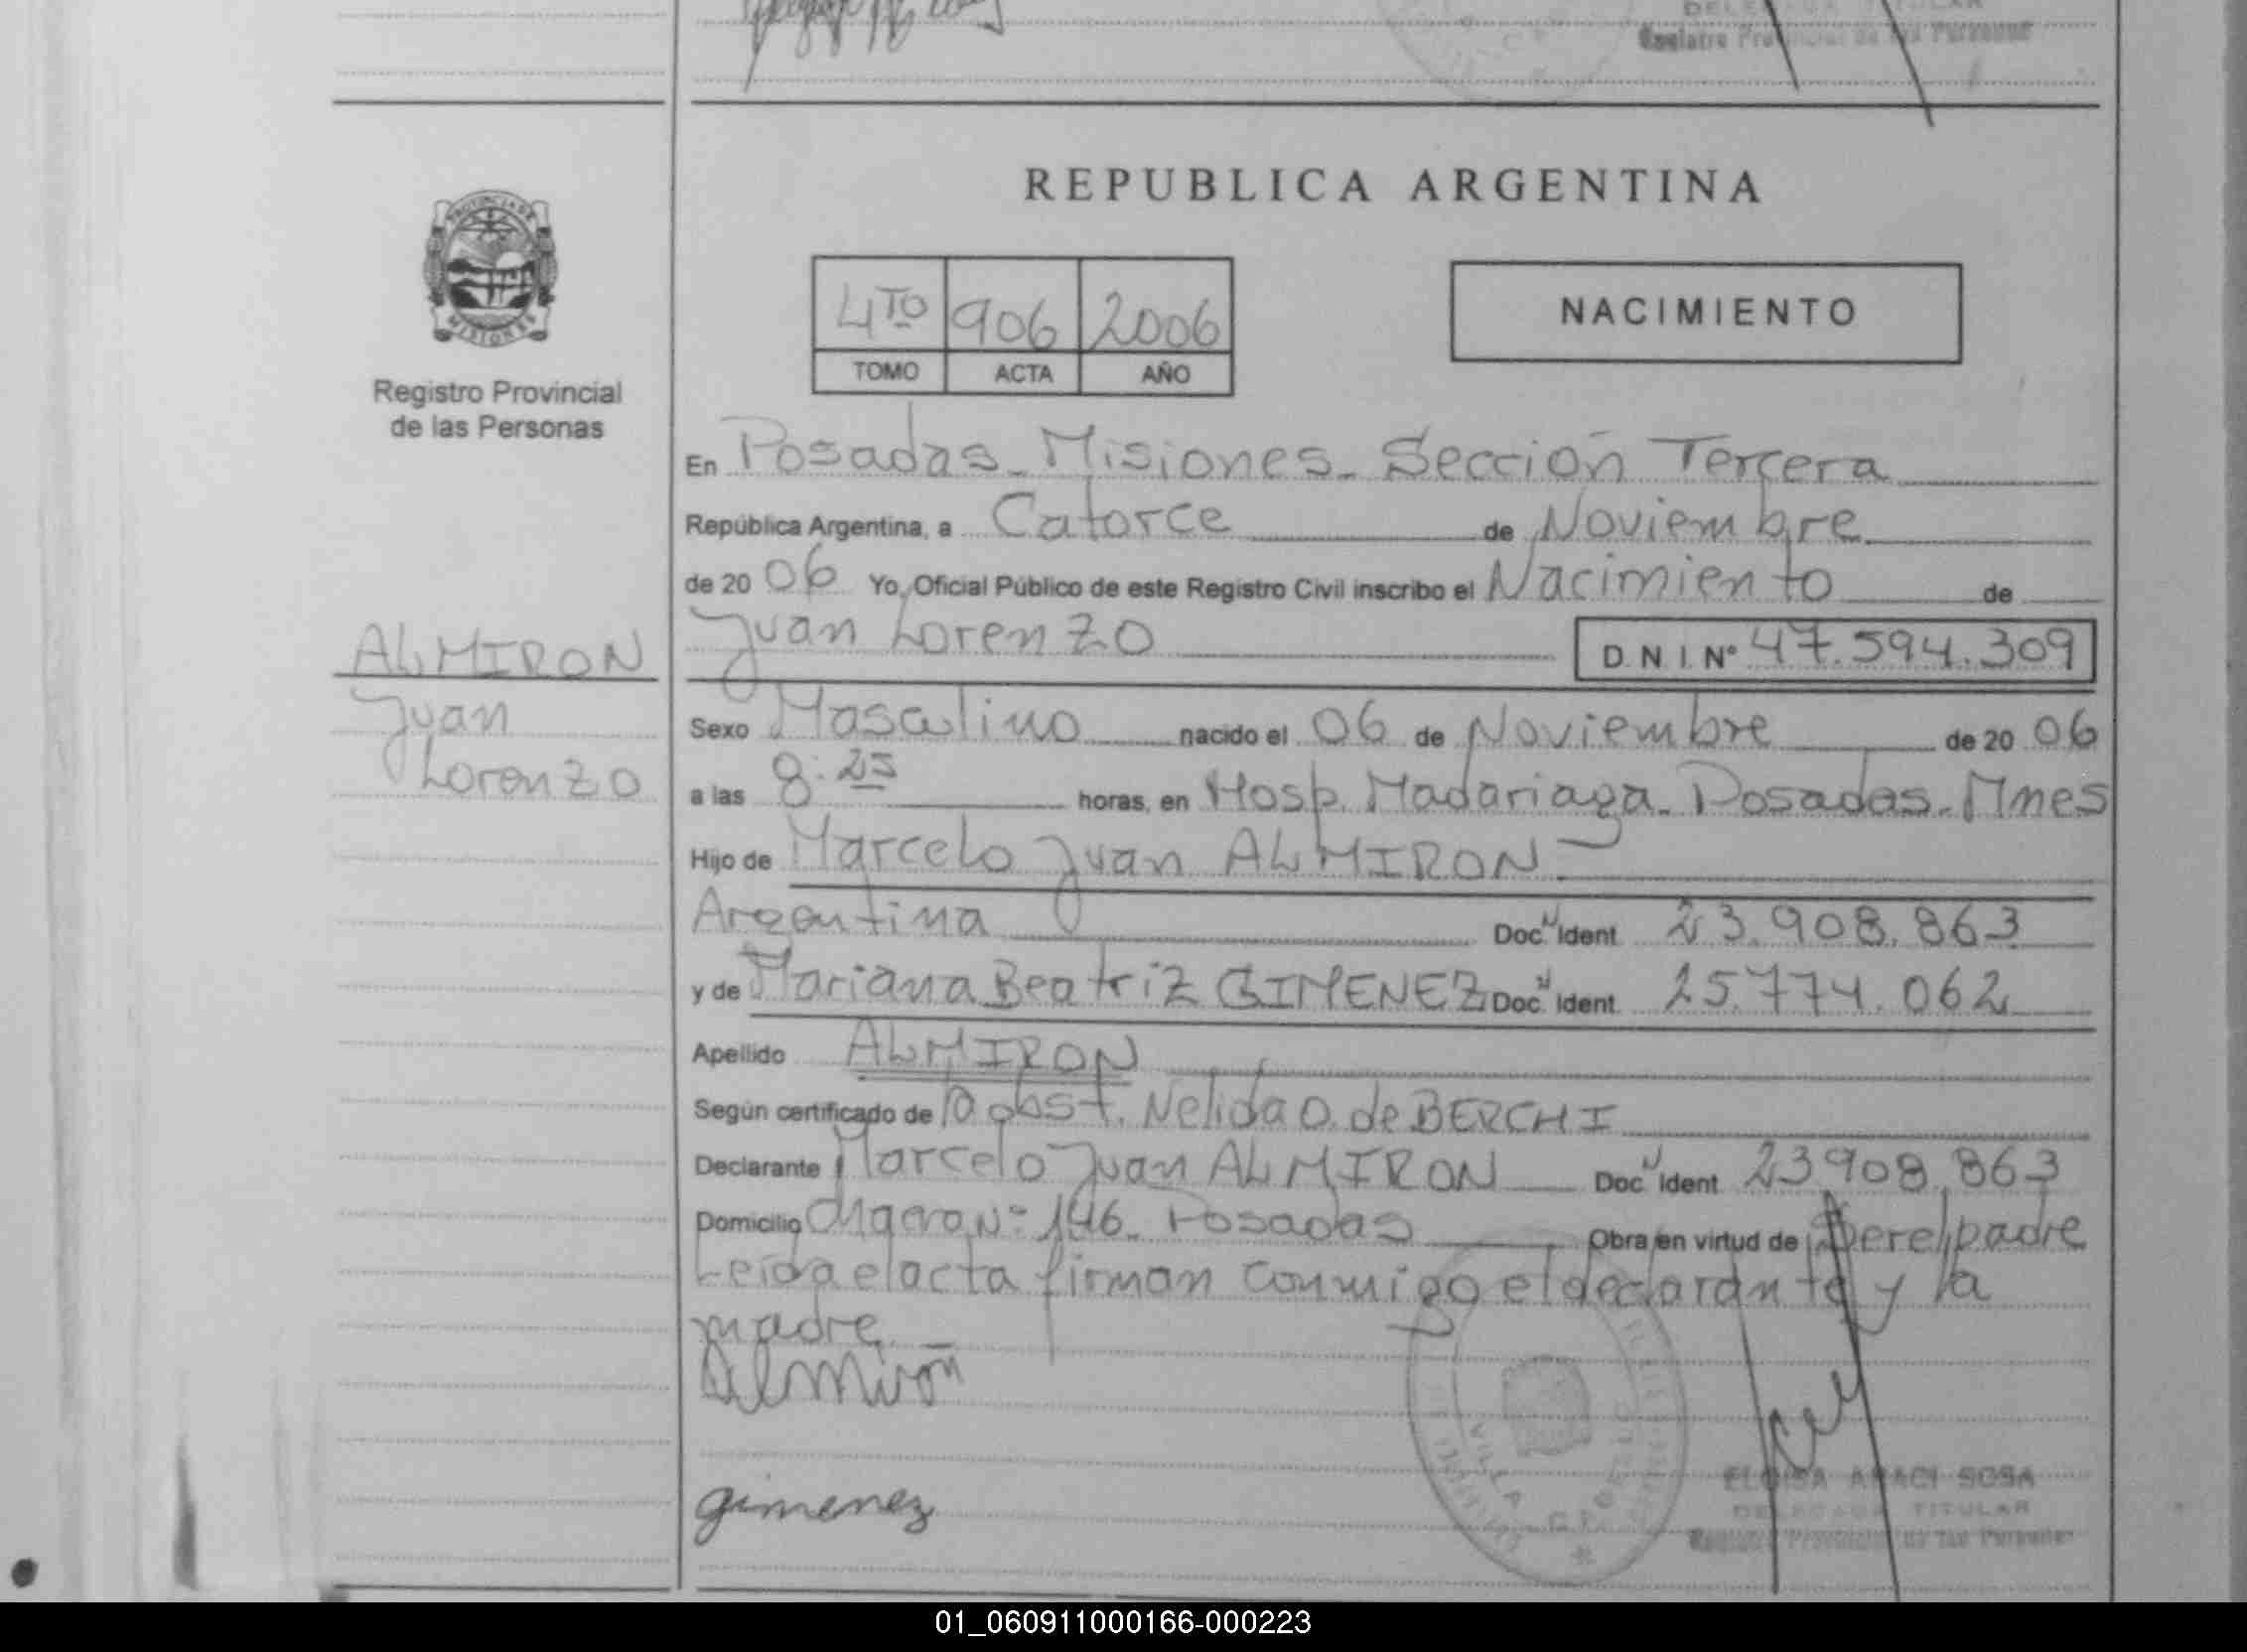 Registro Provincial de las Personas
PROVINCIA DE
MISIONES
Registro Provincial
de las Personas
ALMIRON
Juan
Lorenzo
REPUBLICA ARGENTINA
4TO 906 2006
TOMO ACTA AÑO
NACIMIENTO
En Posadas - Misiones - Sección Tercera
República Argentina, a Catorce de Noviembre
de 2006 Yo, Oficial Público de este Registro Civil inscribo el Nacimiento de
Juan Lorenzo D.N.I. Nº 47.594.309
Sexo Masculino nacido el 06 de Noviembre de 2006
a las 8:25 horas, en Hosp. Madariaga - Posadas - Mnes
Hijo de Marcelo Juan ALMIRON
Argentina Doc. N Ident 23.908.863
y de Mariana Beatriz GIMENEZ Doc. N Ident 25.774.062
Apellido ALMIRON
Según certificado de la obst. Nelida O. de BERCHI
Declarante Marcelo Juan ALMIRON Doc N Ident 23908.863
Domicilio Nº 146 - Posadas Obra en virtud de ser el padre
Leida el acta firman conmigo el declarante y la
madre. -
Almirón
gimenez
ELOISA ARACI SOSA
DELEGADA TITULAR
Registro Provincial de las Personas
01_060911000166-000223